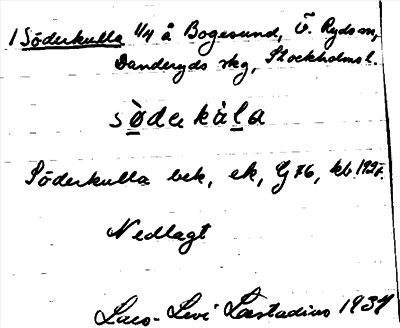 1 Söderkulla 1/4 å Bogesund, Ö. Ryds sn,
Danderyds skg, Stockholms l.
sö̀derkùla
Söderkulla bek, ek, G 76, kb 1927.
Nedlagt
Lars-Levi Læstadius 1937